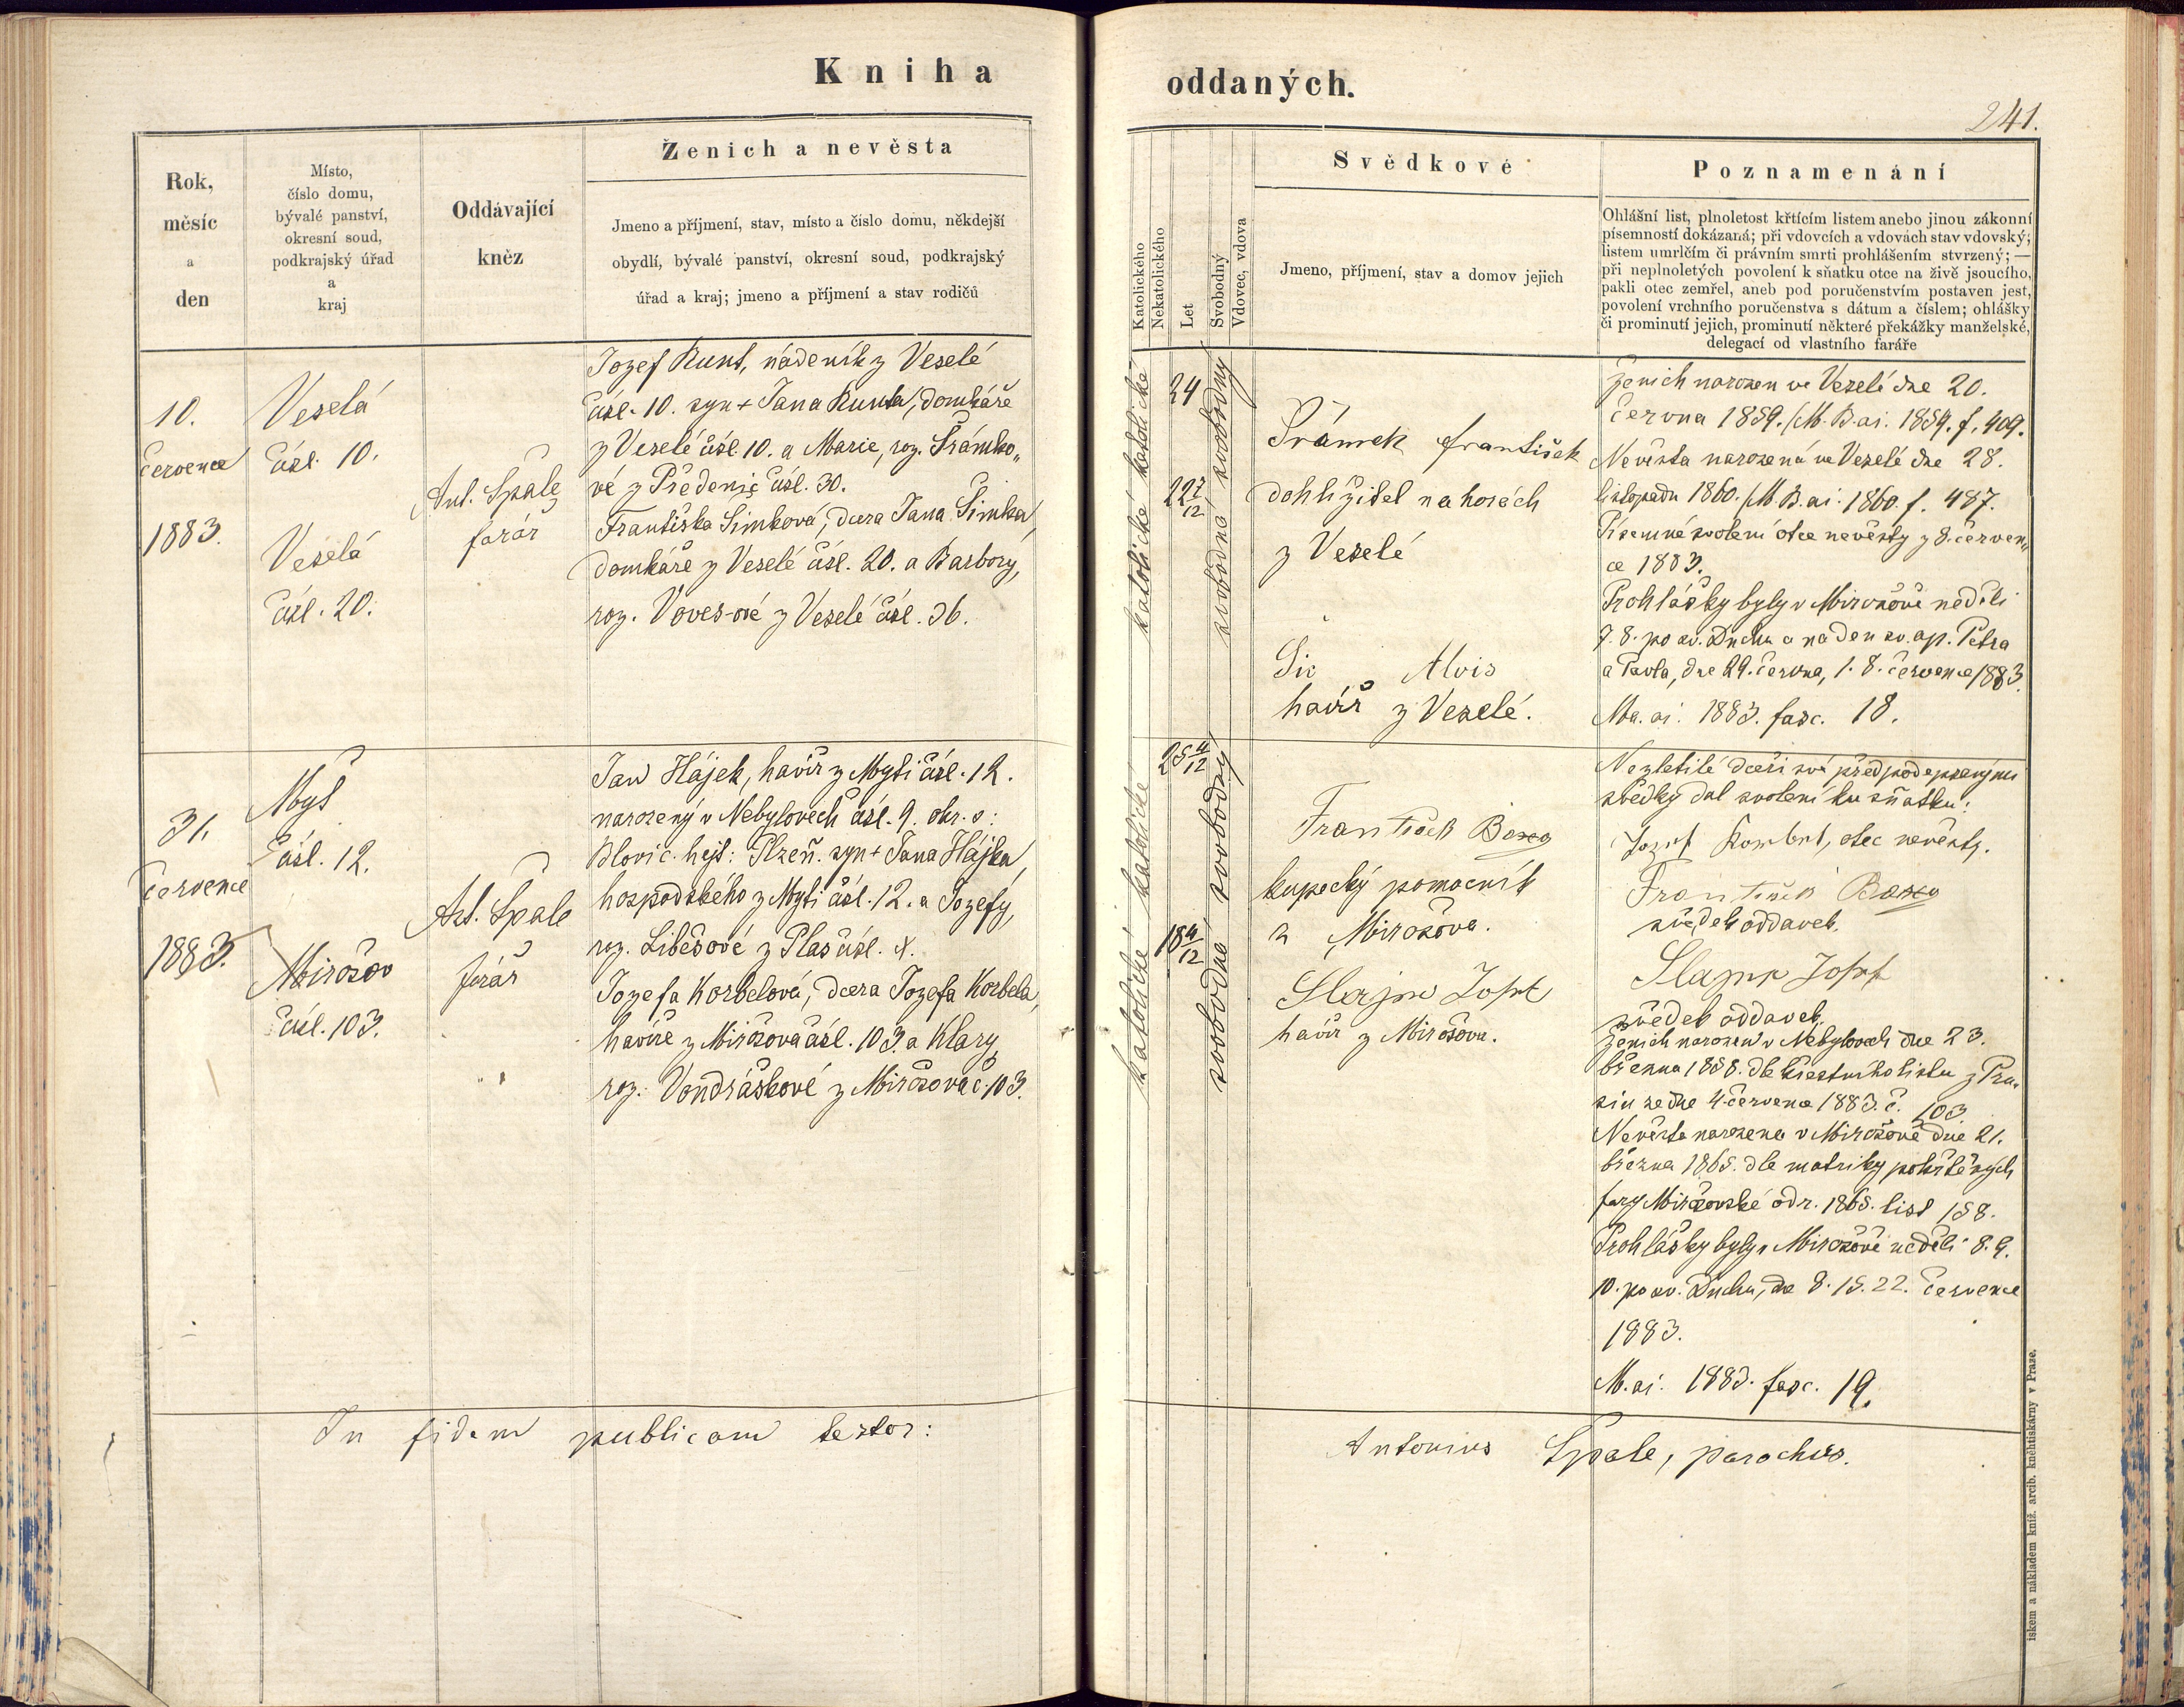 Kniha
oddaných.
241.
Rok,
měsíc
a
den
Místo,
číslo domu,
bývalé panství,
okresní soud,
podkrajský úřad
a
kraj
Oddávající
kněz
Ženich a nevěsta
Jmeno a příjmení, stav, místo a číslo domu, někdejší
obydlí, bývalé panství, okresní soud, podkrajský
úřad a kraj; jmeno a příjmení a stav rodičů
Katolického
Nekatolického
Let
Svobodný
Vdovec, vdova
Svědkové
Jmeno, příjmení, stav a domov jejich
Poznamenání
Ohlášní list, plnoletost křtícím listem anebo jinou zákonní
písemností dokázaná; při vdovcích a vdovách stav vdovský;
listem umrlčím či právním smrti prohlášením stvrzený; —
při neplnoletých povolení k sňatku otce na živě jsoucího,
pakli otec zemřel, aneb pod poručenstvím postaven jest,
povolení vrchního poručenstva s dátum a číslem; ohlášky
či prominutí jejich, prominutí některé překážky manželské,
delegací od vlastního faráře
10.
července
1883.
Veselá
čísl. 10.
Veselá
čísl. 20.
Ant. Špale
farář
Jozef Kunt, nádeník z Veselé
čísl. 10. syn + Jana Kunta, domkáře
z Veselé čísl. 10. a Marie, roz. Šrámko„
vé z Předenic čísl. 30.
Františka Šimková, dcera Jana Šimka,
domkáře z Veselé čísl. 20. a Barbory,
roz. Voves-ové z Veselé čísl. 36.
katolické katolické
24
22 7/12
svobodná svobodný
Šrámek František
dohlížitel na horách
z Veselé
Šic Alois
havíř z Veselé.
Ženich narozen ve Veselé dne 20.
června 1859. /M. B. ai. 1859. f. 409.
Nevěsta narozená ve Veselé dne 28.
listopadu 1860. /M. B. ai. 1860. f. 487.
Písemné svolení otce nevěsty z 8. červen„
ce 1883.
Prohlášky byly v Mirošově neděli
7. 8. po sv. Duchu a na den sv. ap. Petra
a Pavla, dne 29. června, 1. 8. července 1883.
Ma. ai. 1883. fasc. 18.
31.
července
1883.
Myť
čísl. 12.
Mirošov
čísl. 103.
Ant. Špale
farář
Jan Hájek, havíř z Myti čísl. 12.
narozený v Nebylovech čísl. 9. okr. s:
Blovic. hejt: Plzeň. syn + Jana Hájka,
hospodského z Myti čísl. 12. a Jozefy,
roz. Libešové z Plas čísl.
Jozefa Korbelová, dcera Jozefa Korbela,
havíře z Mirošova čísl. 103. a Klary
roz. Vondráškové z Mirošova č. 103.
katolické katolické
25 4/12
18 4/12
svobodná svobodný
František
kupecký pomocník
z Mirošova.
Slajpa Josef
havíř z Mirošova.
Nezletilé dceři své před podepsanými
svědky dal svolení ku sňatku:
Jozef Korbel, otec nevěsty.
František
svědek oddaveb.
Slajpa Josef
svědek oddaveb.
Ženich narozen v Nebylovech dne 23.
března 1858. dle křestního listu z Pru„
sin ze dne 4. července 1883. č. 103
Nevěsta narozena v Mirošově dne 21.
března 1865. dle matriky pokřtěných
fary Mirošovské od r. 1865. list 158.
Prohlášky byly v Mirošově neděli 8. 9.
10. po sv. Duchu, dne 8. 15. 22. července
1883.
M. ai. 1883. fasc. 19.
In fidem publicam testor:
Antonius Špale, parochus.
iskem a nákladem kníž. arcib. kněhtiskárny v Praze.